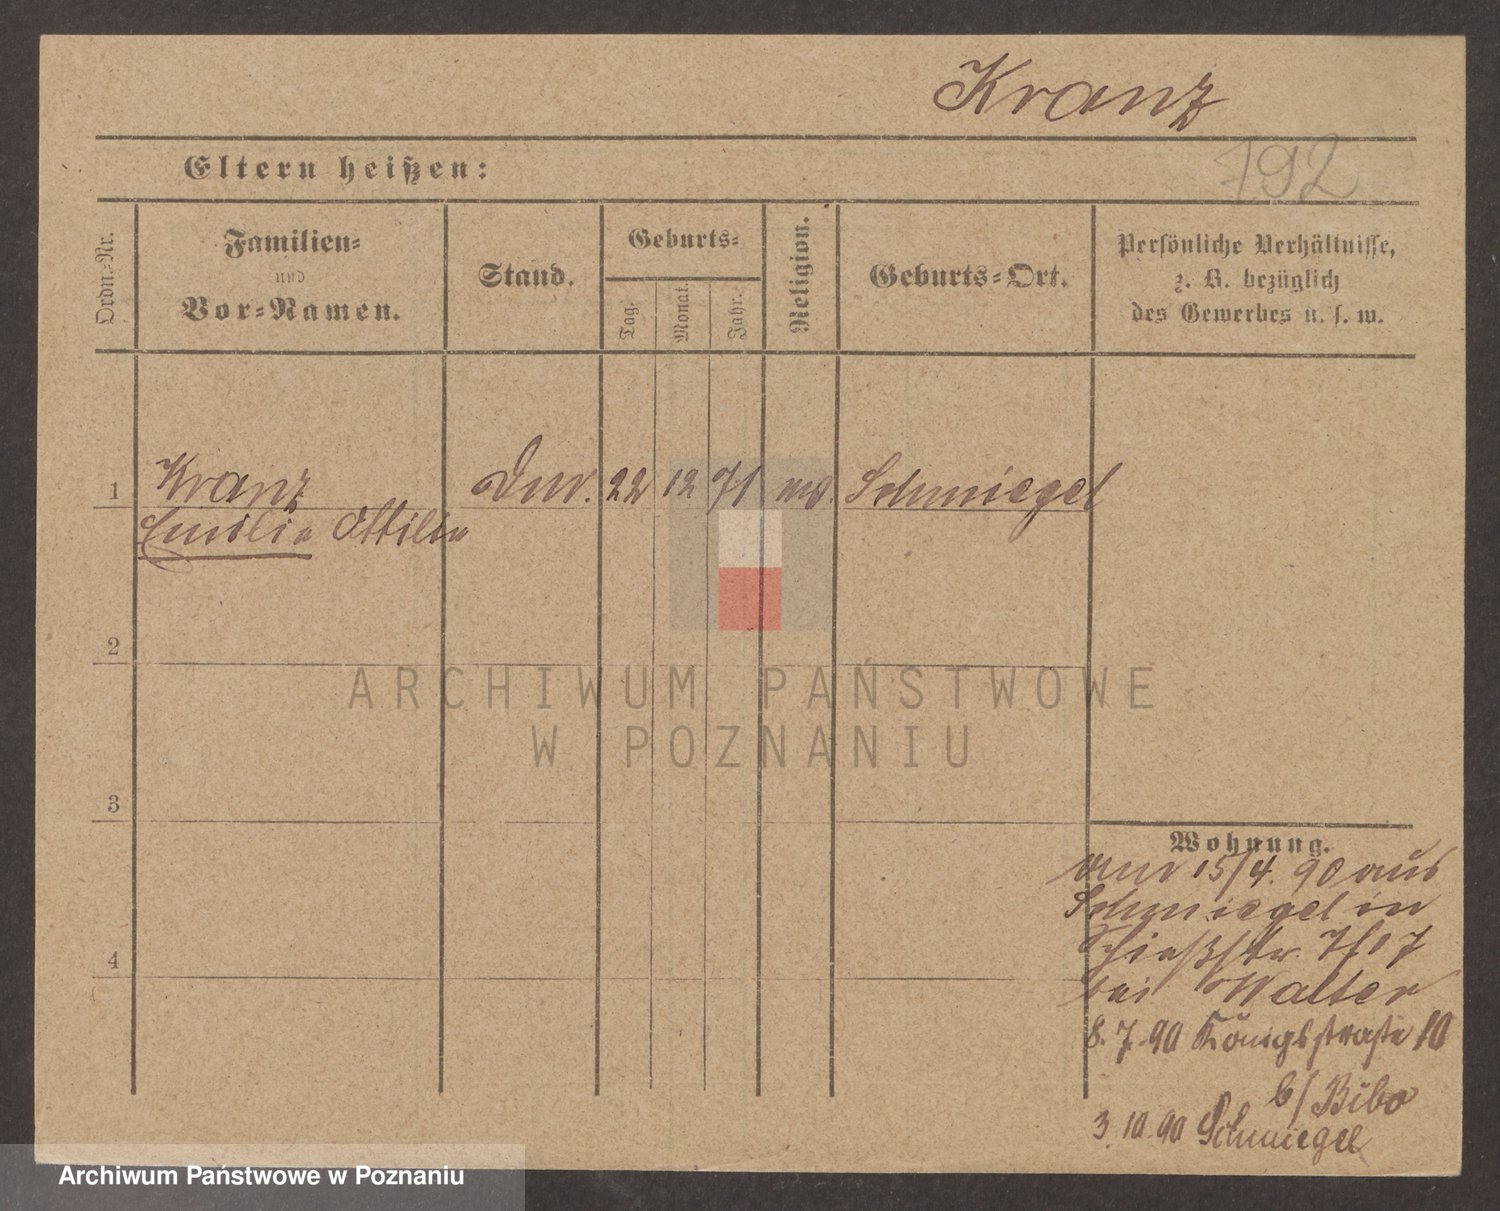 Kranz
792
Eltern heißen:
Ordn.-Nr.
Familien-
und
Vor-Namen.
Stand.
Geburts-
Tag.
Monat.
Jahr.
Religion.
Geburts-Ort.
Persönliche Verhältnisse,
z. B. bezüglich
des Gewerbes u. s. w.
1
Kranz
22 12 71
Schmiegel
Emilie Ottilie
2
3
4
Wohnung.
15/4. 90 aus
Schmiegel in
Schießstr. 7
bei Walter
8. 7. 90 Königsstraße 10
b/ Bibo
3. 10. 90 Schmiegel
ARCHIWUM PAŃSTWOWE
W POZNANIU
Archiwum Państwowe w Poznaniu